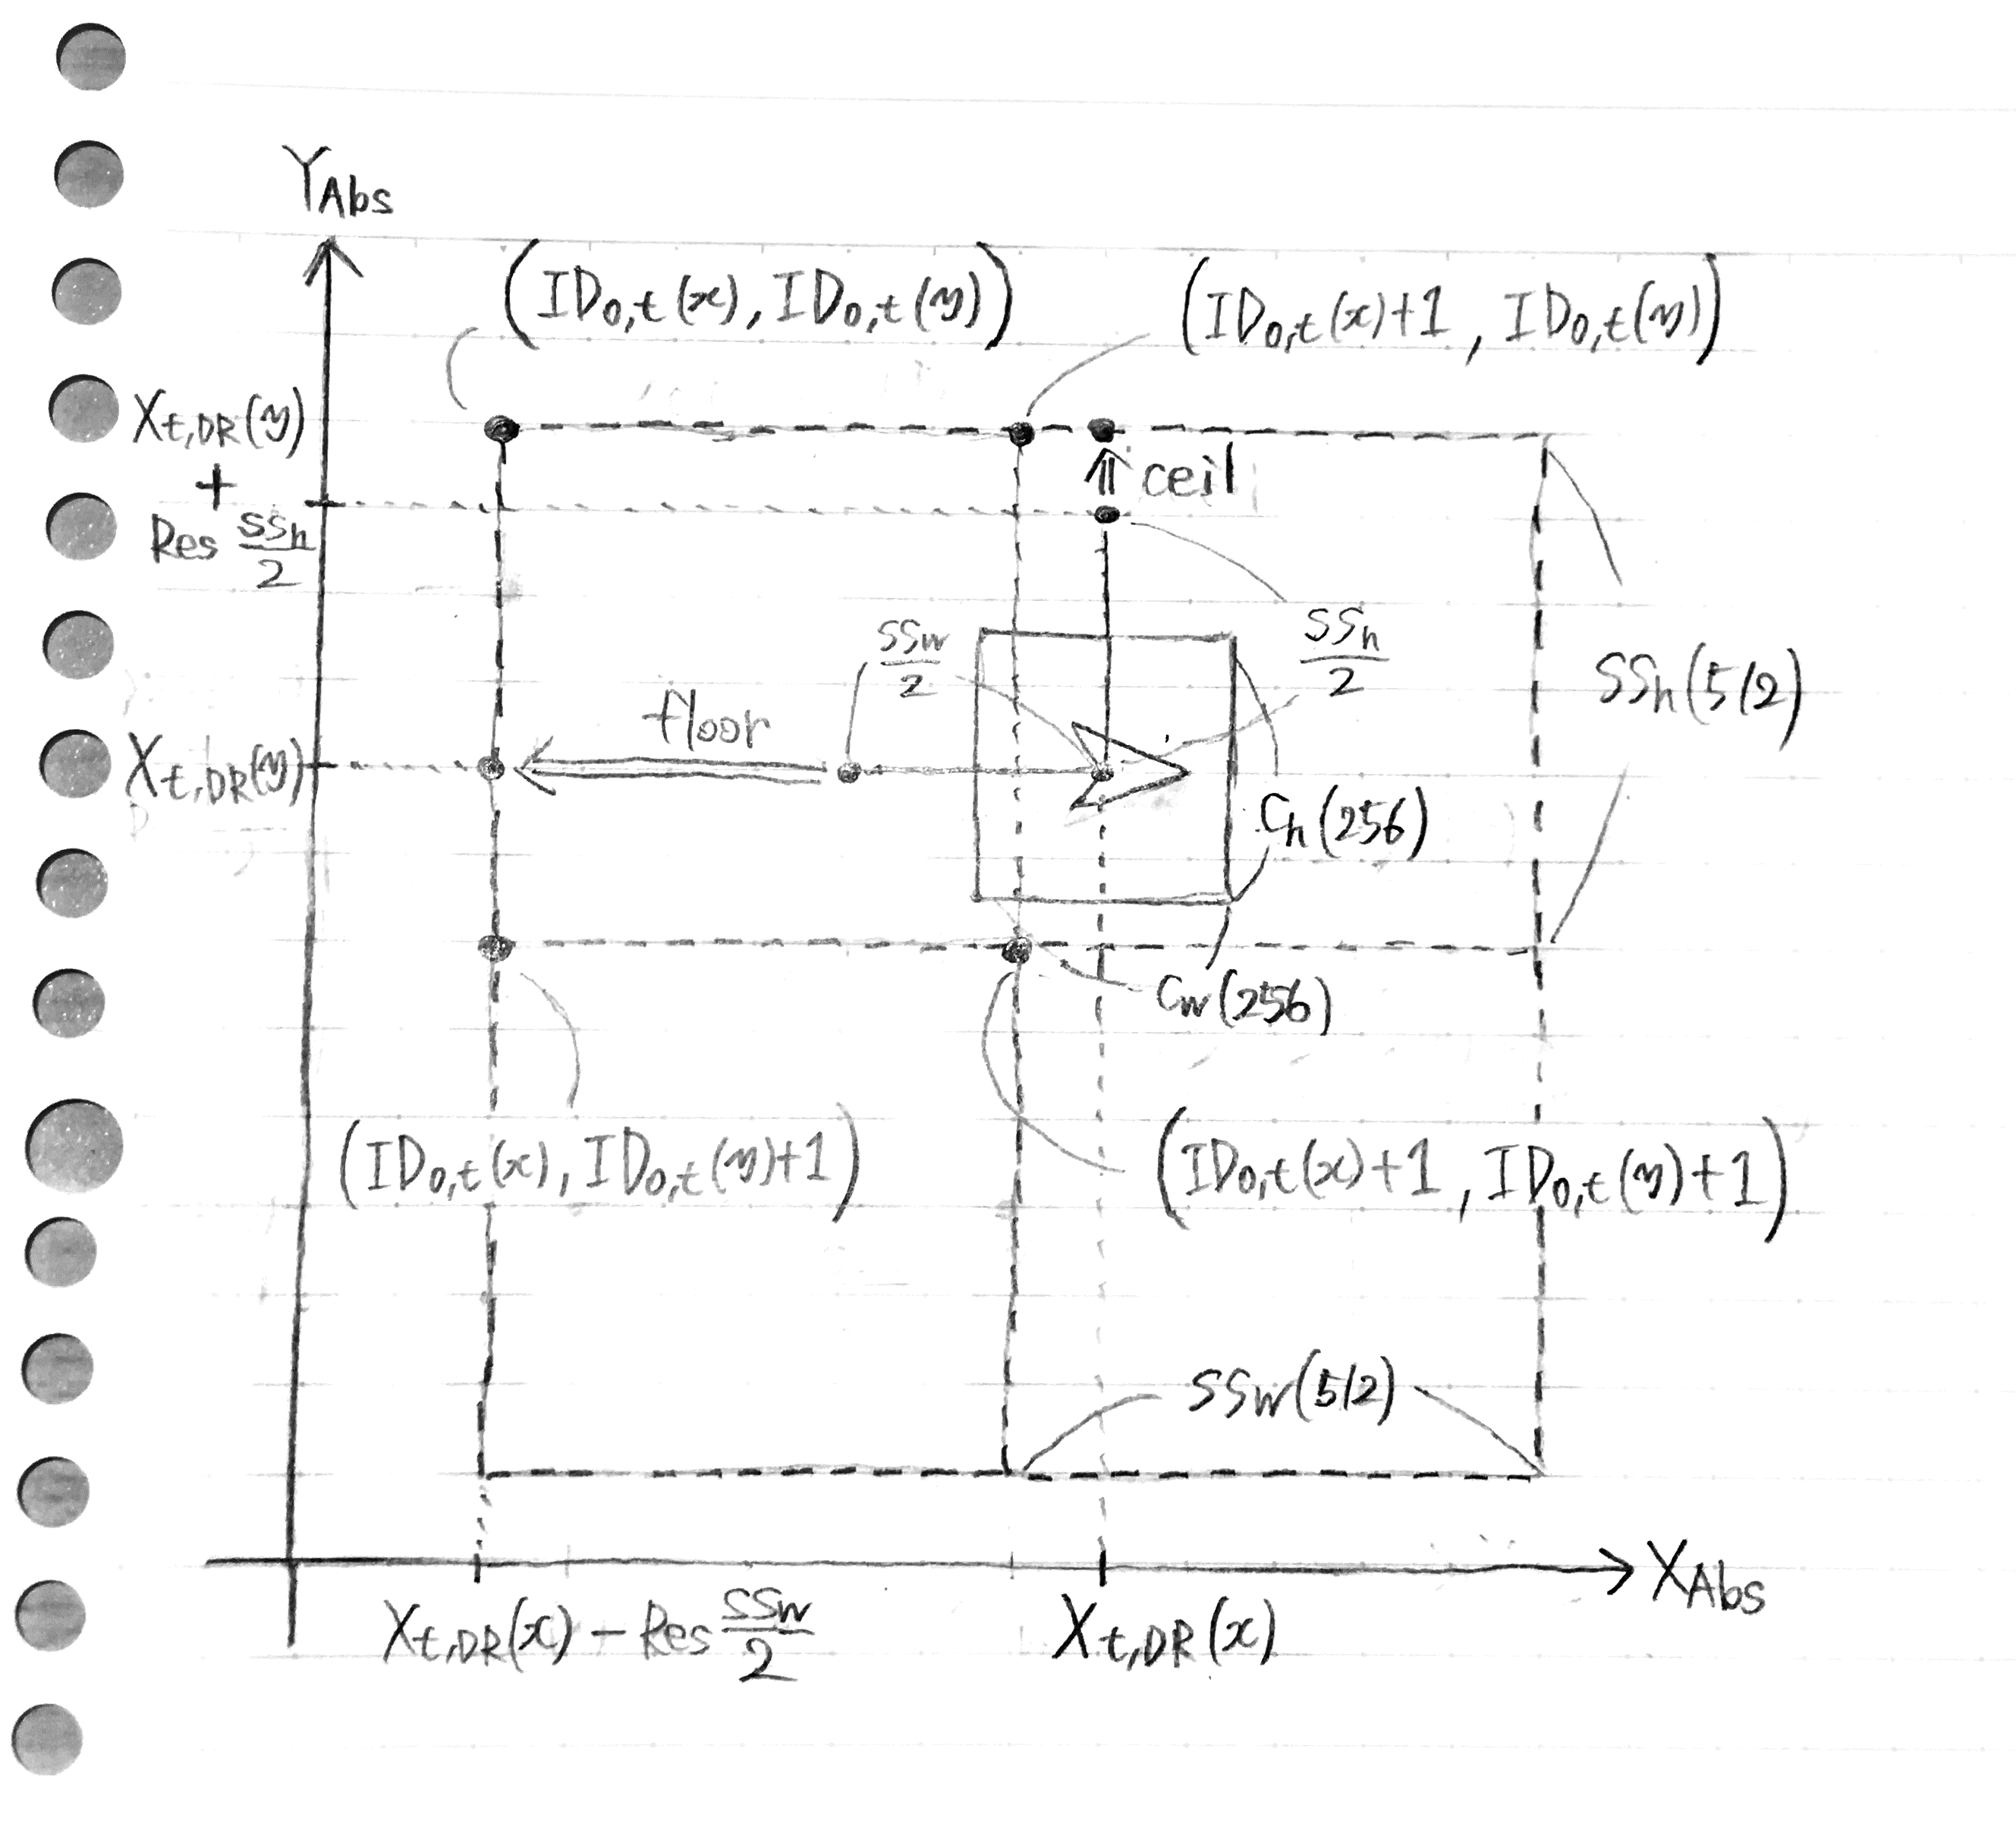 Y_Abs
(ID_{0,t}(x), ID_{0,t}(y))
(ID_{0,t}(x)+1, ID_{0,t}(y))
X_{t,DR}(y)
+
Res SS_h/2
ceil
SS_w/2
SS_h/2
SS_h(512)
floor
X_{t,DR}(y)
C_h(256)
C_w(256)
(ID_{0,t}(x), ID_{0,t}(y)+1)
(ID_{0,t}(x)+1, ID_{0,t}(y)+1)
SS_w(512)
X_Abs
X_{t,DR}(x) - Res SS_w/2
X_{t,DR}(x)